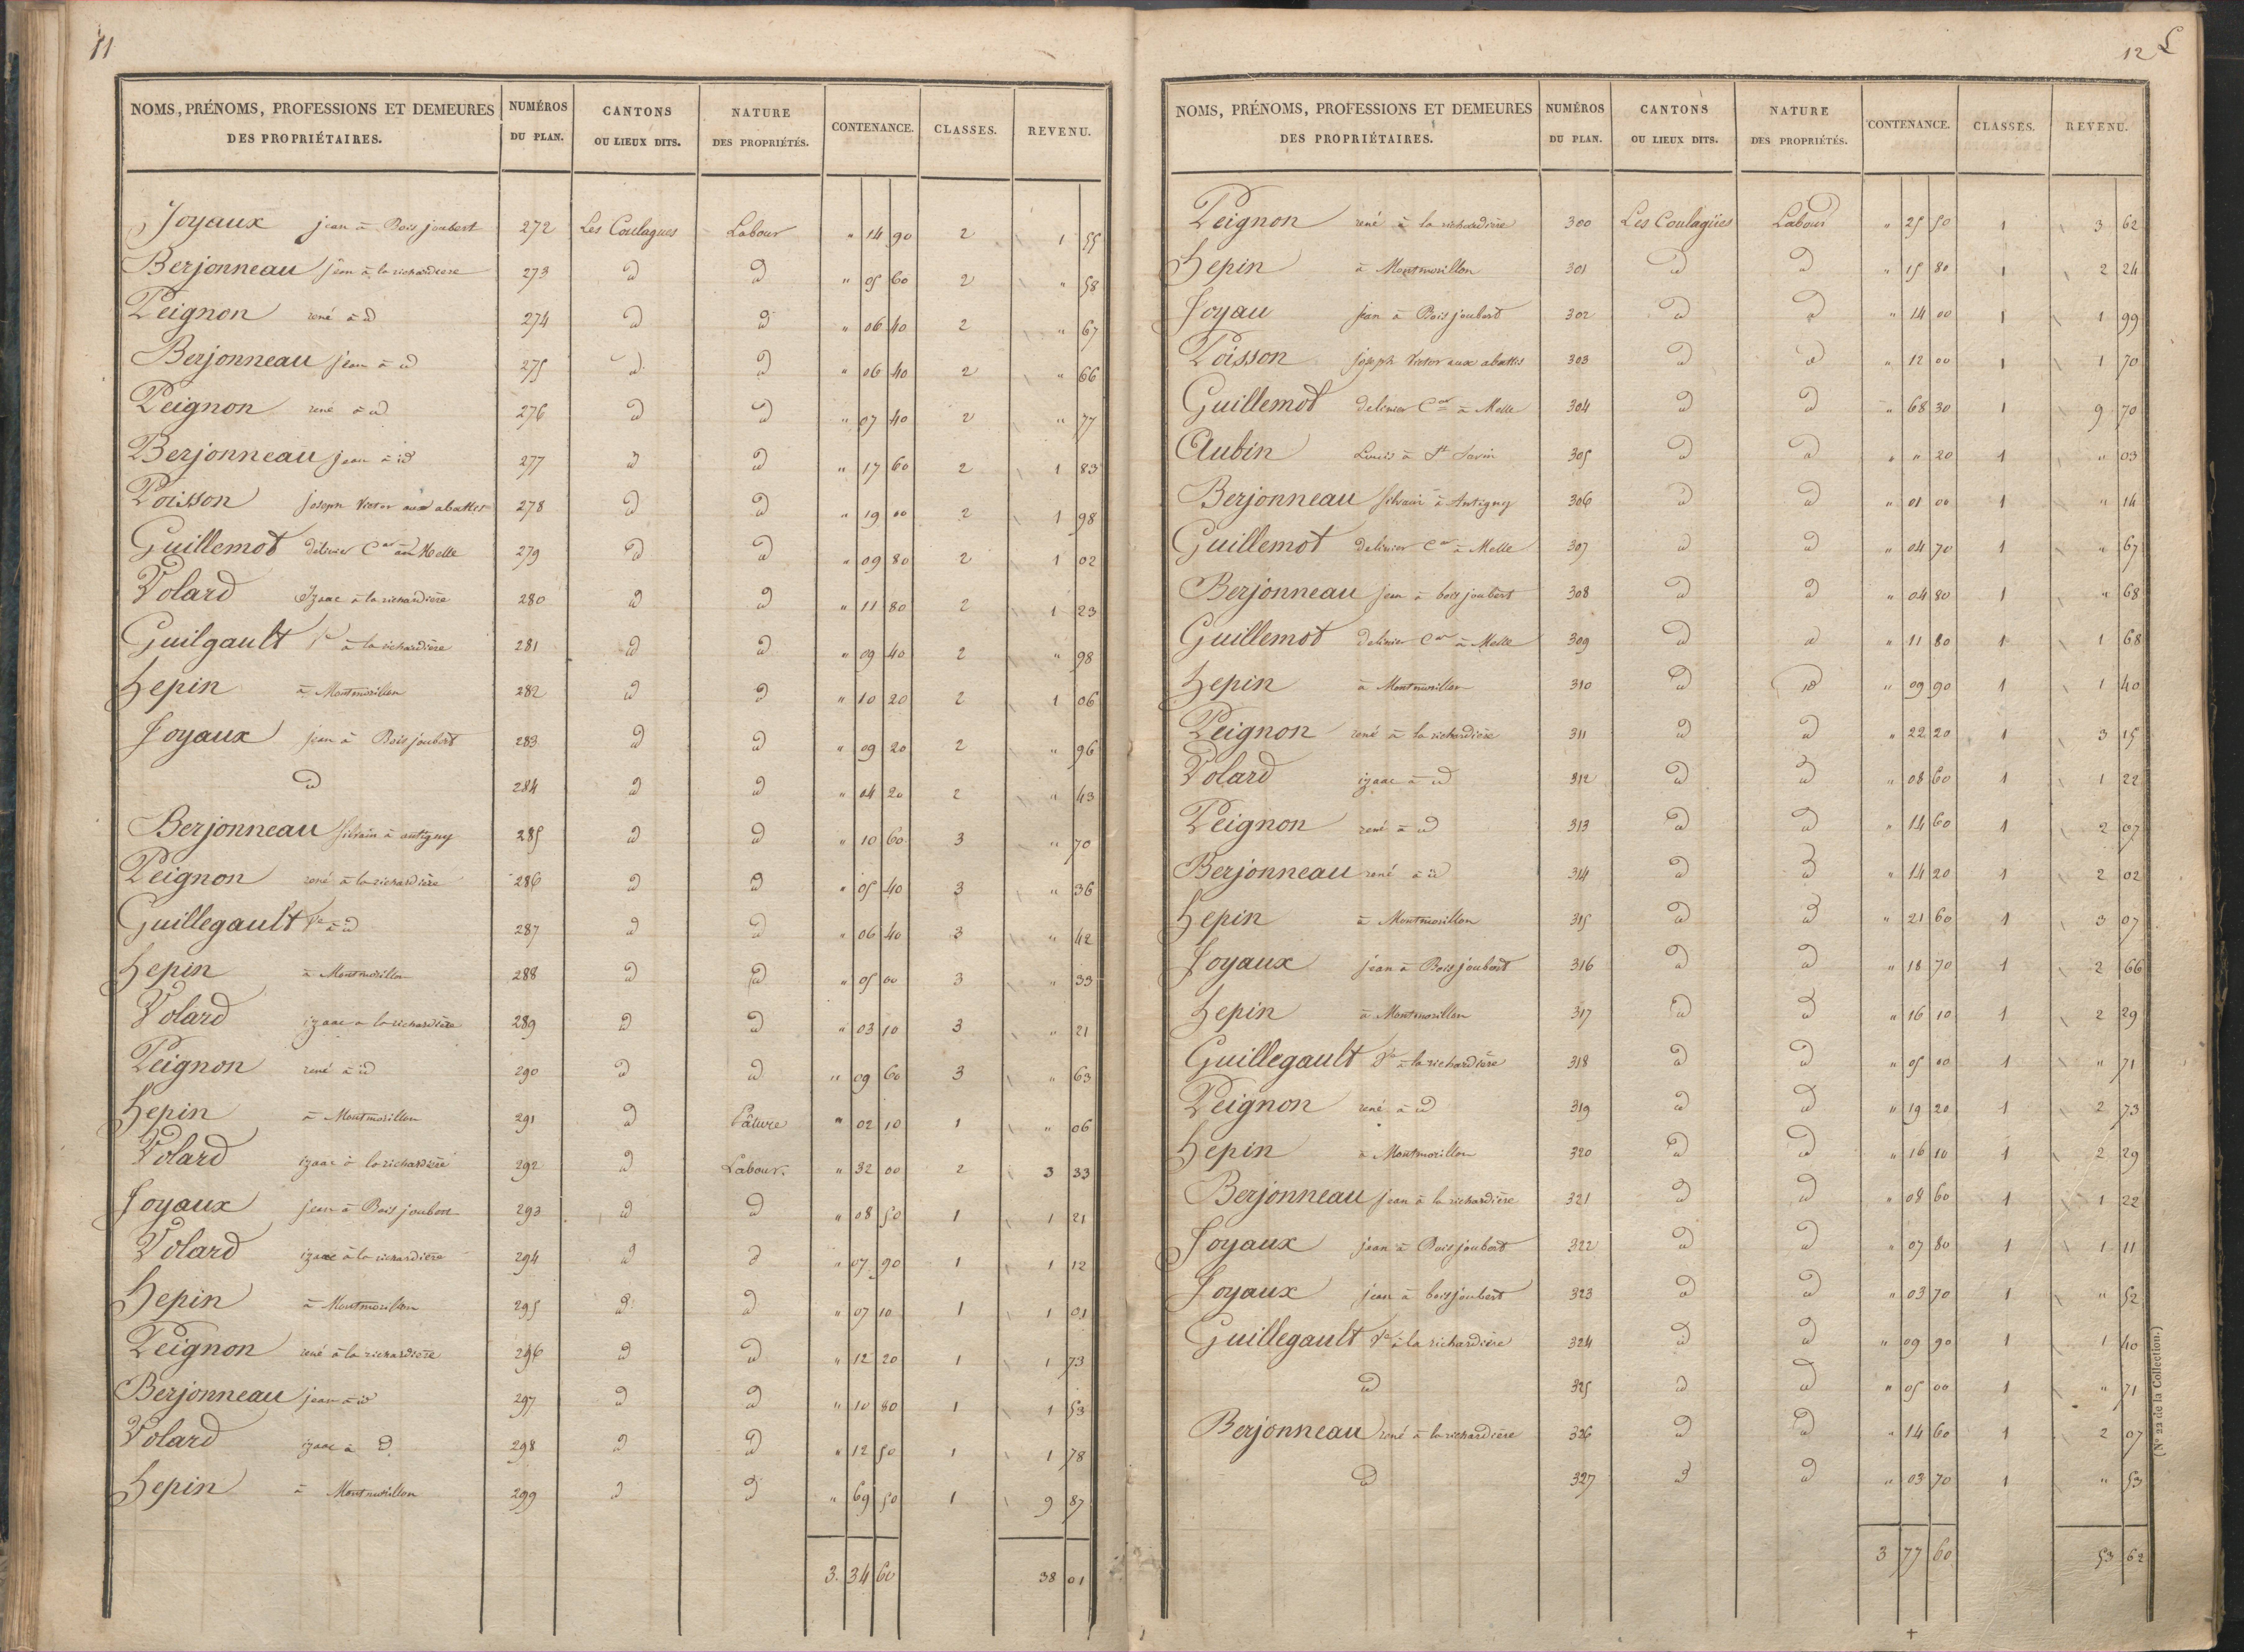 11
NOMS, PRÉNOMS, PROFESSIONS ET DEMEURES DES PROPRIÉTAIRES. NUMÉROS DU PLAN. CANTONS OU LIEUX DITS. NATURE DES PROPRIÉTÉS. CONTENANCE. CLASSES. REVENU.
Joyaux jean à Bois joubert 272 Les Coulagues Labour " 14 90 2 1 55
Berjonneau jean à la richardiere 273 id id " 05 60 2 " 58
Peignon rené à id 274 id id " 06 40 2 " 67
Berjonneau jean à id 275 id id " 06 40 2 " 66
Peignon rené à id 276 id id " 07 40 2 " 77
Berjonneau jean à id 277 id id " 17 60 2 1 83
Poisson joseph Victor aux abattis 278 id id " 19 00 2 1 98
Guillemot delinier Car à Melle 279 id id " 09 80 2 1 02
Volard Izaac à la richardière 280 id id " 11 80 2 1 23
Guilgault Ve à la richardière 281 id id " 09 40 2 " 98
Hepin à Montmorillon 282 id id " 10 20 2 1 06
Joyaux jean à Bois joubert 283 id id " 09 20 2 " 96
id 284 id id " 04 20 2 " 43
Berjonneau Silvain à antigny 285 id id " 10 60 3 " 70
Peignon rené à la richardière 286 id id " 05 40 3 " 36
Guillegault Ve à id 287 id id " 06 40 3 " 42
Hepin à Montmorillon 288 id id " 05 00 3 " 33
Volard izaac à la richardière 289 id id " 03 10 3 " 21
Peignon rené à id 290 id id " 09 60 3 " 63
Hepin à Montmorillon 291 id Pâture " 02 10 1 " 06
Volard izaac à la richardière 292 id Labour " 32 00 2 3 33
Joyaux jean à Bois joubert 293 id id " 08 50 1 1 21
Volard izaac à la richardière 294 id id " 07 90 1 1 12
Hepin à Montmorillon 295 id id " 07 10 1 1 01
Peignon rené à la richardière 296 id id " 12 20 1 1 73
Berjonneau jean à id 297 id id " 10 80 1 1 53
Volard izaac à id 298 id id " 12 50 1 1 78
Hepin à Montmorillon 299 id id " 69 50 1 9 87
3. 34 60 38 01
12
NOMS, PRÉNOMS, PROFESSIONS ET DEMEURES DES PROPRIÉTAIRES. NUMÉROS DU PLAN. CANTONS OU LIEUX DITS. NATURE DES PROPRIÉTÉS. CONTENANCE. CLASSES. REVENU.
Peignon rené à la richardière 300 Les Coulagües Labour " 25 50 1 3 62
Hepin à Montmorillon 301 id id " 15 80 1 2 24
Joyau jean à Bois joubert 302 id id " 14 00 1 1 99
Poisson joseph Victor aux abattis 303 id id " 12 00 1 1 70
Guillemot delinier Car à Melle 304 id id " 68 30 1 9 70
Aubin Louis à St Savin 305 id id " " 20 1 " 03
Berjonneau Silvain à Antigny 306 id id " 01 00 1 " 14
Guillemot delinier Car à Melle 307 id id " 04 70 1 " 67
Berjonneau jean à bois joubert 308 id id " 04 80 1 " 68
Guillemot delinier Car à Melle 309 id id " 11 80 1 1 68
Hepin à Montmorillon 310 id id " 09 90 1 1 40
Peignon rené à la richardière 311 id id " 22 20 1 3 15
Volard izaac à id 312 id id " 08 60 1 1 22
Peignon rené à id 313 id id " 14 60 1 2 07
Berjonneau rené à id 314 id id " 14 20 1 2 02
Hepin à Montmorillon 315 id id " 21 60 1 3 07
Joyaux jean à Bois joubert 316 id id " 18 70 1 2 66
Hepin à Montmorillon 317 id id " 16 10 1 2 29
Guillegault Ve à la richardière 318 id id " 05 00 1 " 71
Peignon rené à id 319 id id " 19 20 1 2 73
Hepin à Montmorillon 320 id id " 16 10 1 2 29
Berjonneau jean à la richardière 321 id id " 08 60 1 1 22
Joyaux jean à Bois joubert 322 id id " 07 80 1 1 11
Joyaux jean à bois joubert 323 id id " 03 70 1 " 52
Guillegault Ve à la richardière 324 id id " 09 90 1 1 40
id 325 id id " 05 00 1 " 71
Berjonneau rené à la richardière 326 id id " 14 60 1 2 07
id 327 id id " 03 70 1 " 53
3 77 60 53 62
(N° 22 de la Collection.)